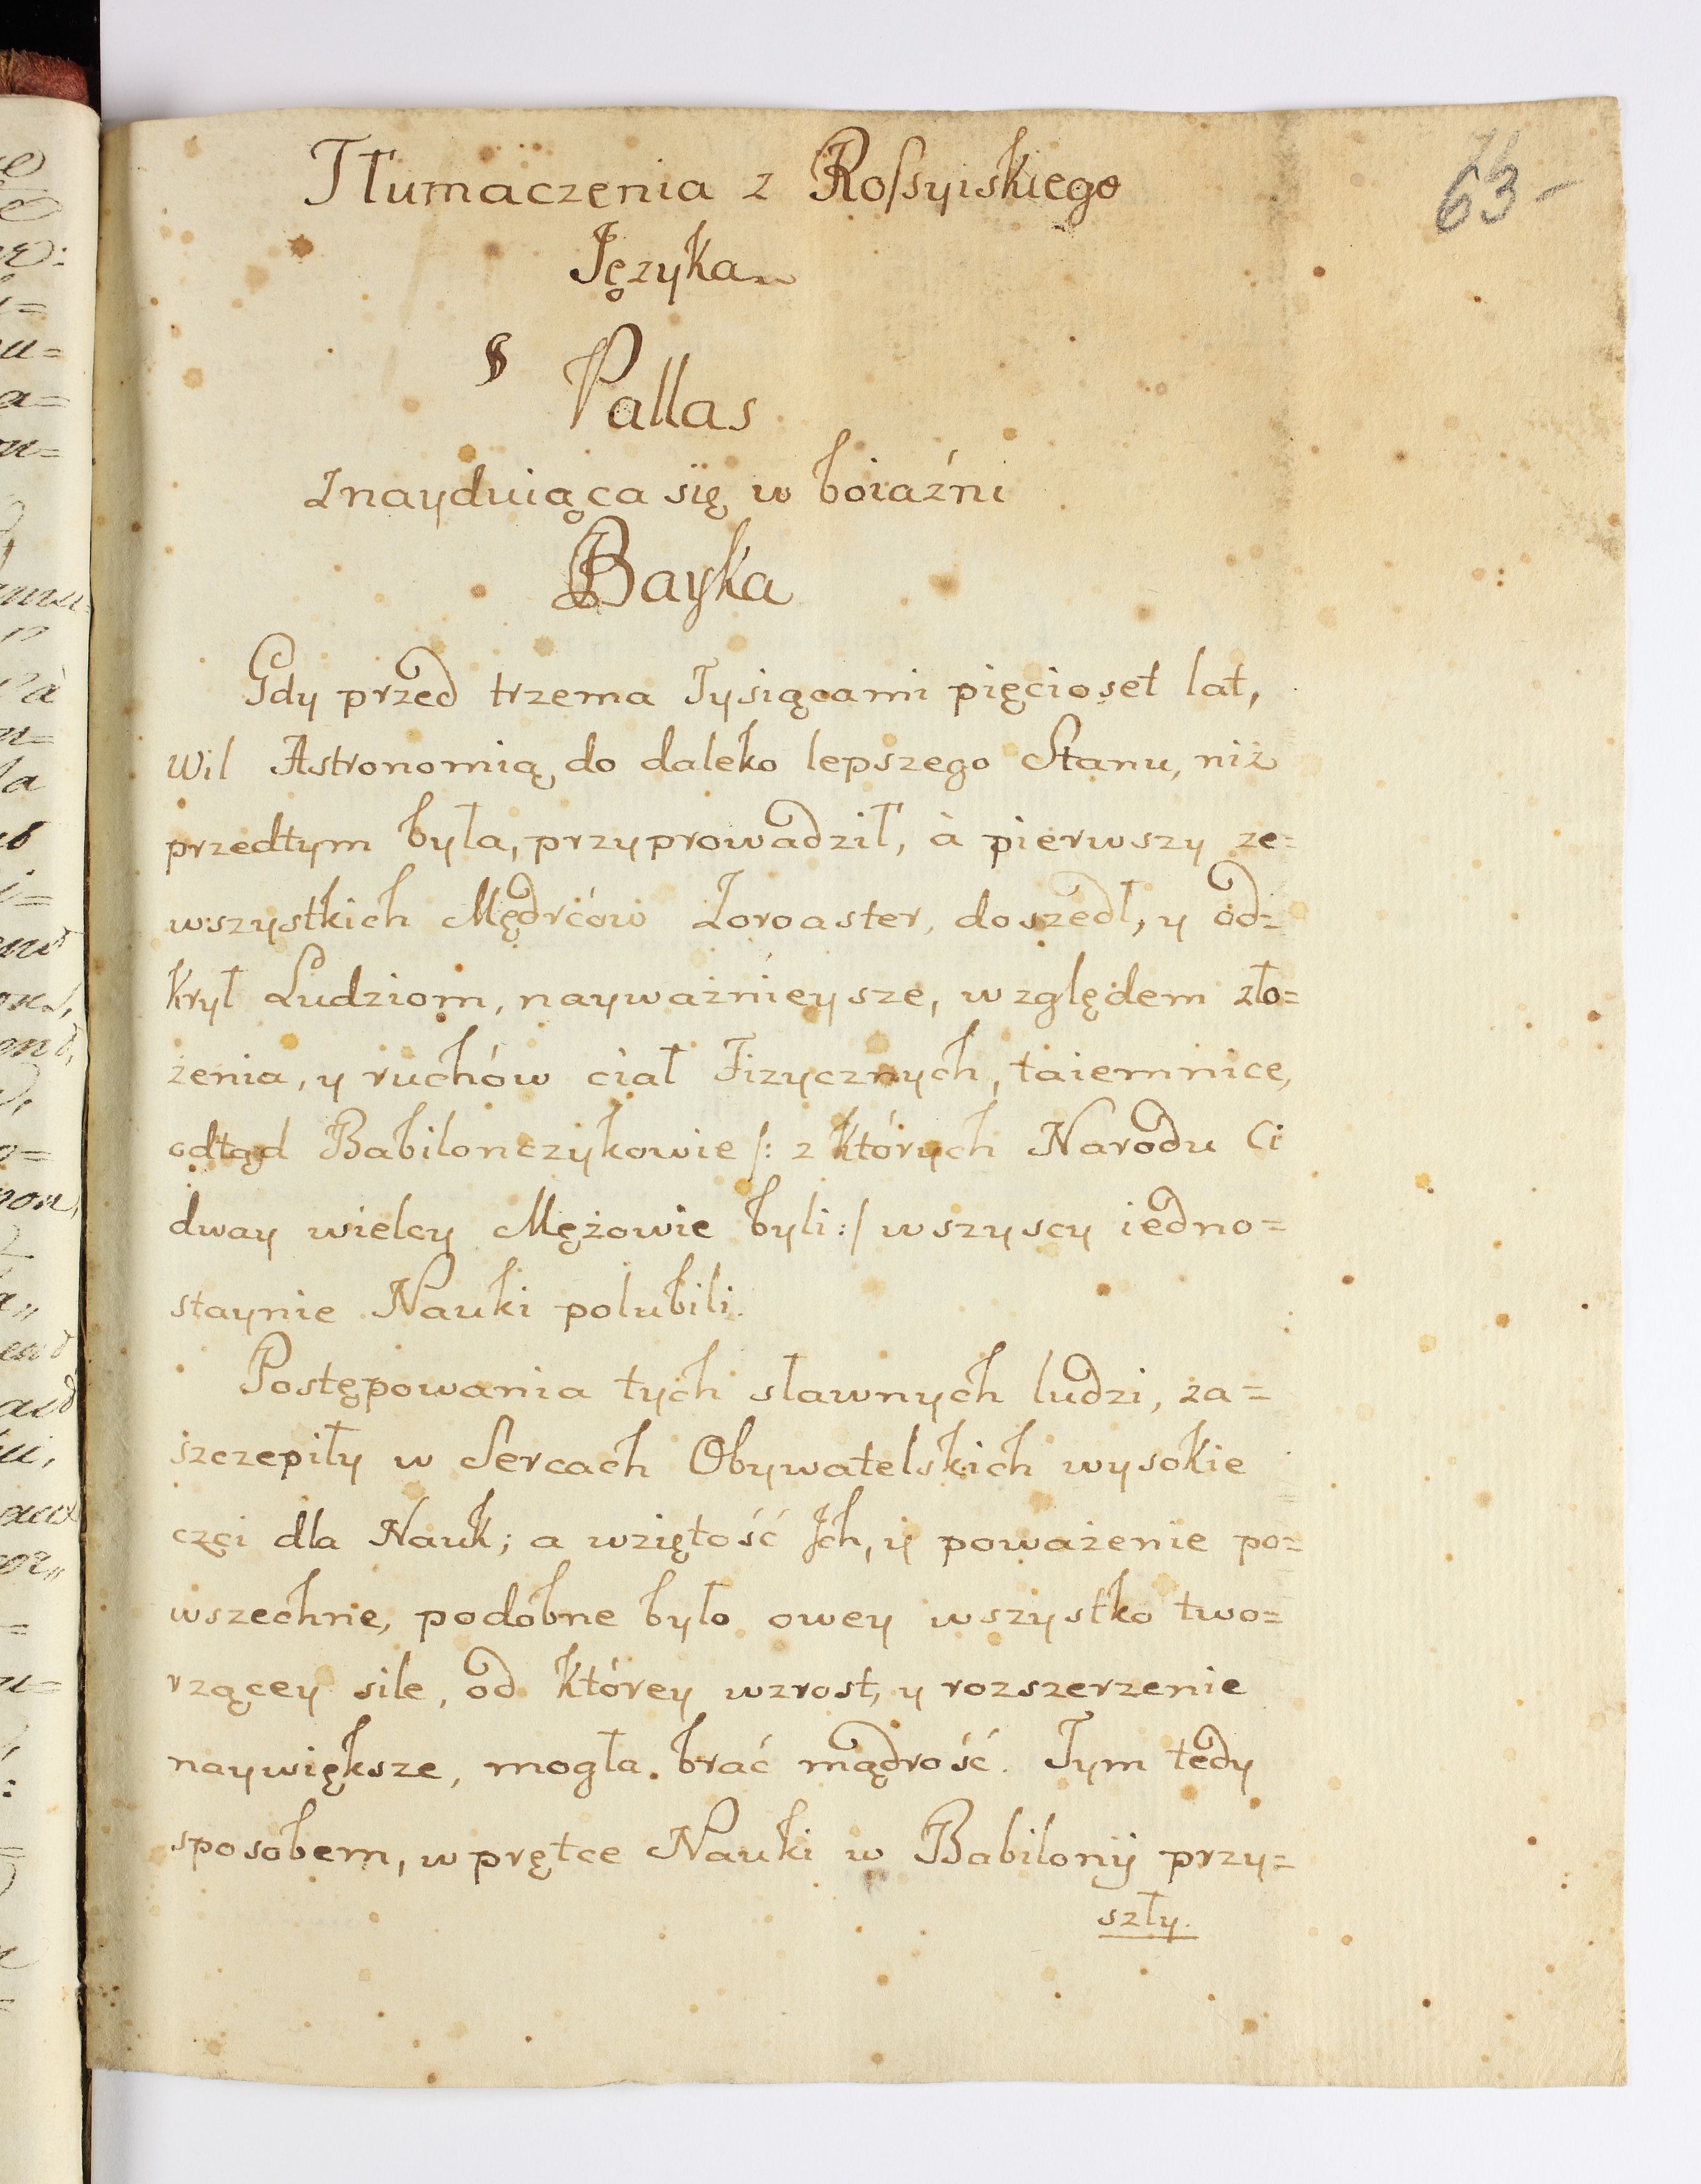 Tłumaczenia z Roſsyiskiego
63-
Języka
§ Pallas
Znayduiąca się w boiaźni
Bayka
Gdy przed trzema Tysiącami pięcioset lat,
Wil Astronomią do daleko lepszego Stanu, niż
przedtym była, przyprowadził, à pierwszy ze=
wszystkich Mędrców Zoroaster, doszedł, y od=
krył Ludziom, nayważnieysze, względem zło=
żenia, y ruchów ciał Fizycznych, taiemnice,
odtąd Babilonczykowie /: z których Narodu Ci
dway wielcy Mężowie byli :/ wszyscy iedno=
staynie Nauki polubili.
Postępowania tych sławnych ludzi, za=
szczepiły w Sercach Obywatelskich wysokie
częci dla Nauk; a wziętość Jch, ÿ poważenie po=
wszechne, podobne było owey wszystko two=
rzącey sile, od którey wzrost, y rozszerzenie
naywiększe, mogła brać mądrość. Tym tedy
sposobem, w prętce Nauki w Babilonÿ przy=
szły.